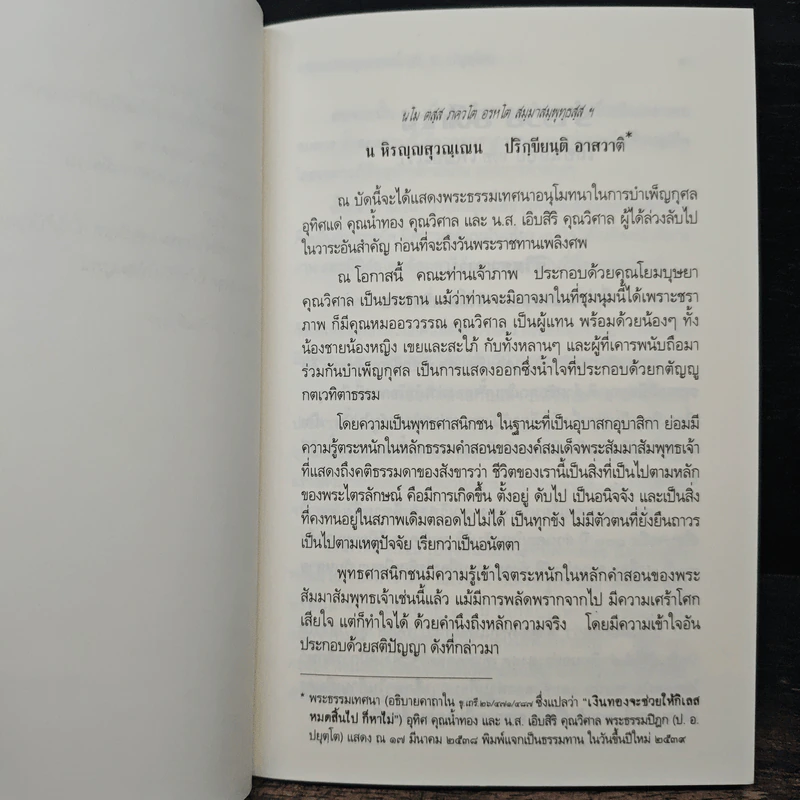 นโม ตสฺส ภควโต อรหโต สมฺมาสมฺพุทฺธสฺส ฯ
น หิรญฺญสุวณฺเณน ปริกฺขียนฺติ อาสวาติ*
ณ บัดนี้จะได้แสดงพระธรรมเทศนาอนุโมทนาในการบำเพ็ญกุศล
อุทิศแด่ คุณน้ำทอง คุณวิศาล และ น.ส. เอิบสิริ คุณวิศาล ผู้ได้ล่วงลับไป
ในวาระอันสำคัญ ก่อนที่จะถึงวันพระราชทานเพลิงศพ
ณ โอกาสนี้ คณะท่านเจ้าภาพ ประกอบด้วยคุณโยมบุษยา
คุณวิศาล เป็นประธาน แม้ว่าท่านจะมิอาจมาในที่ชุมนุมนี้ได้เพราะชรา
ภาพ ก็มีคุณหมออรวรรณ คุณวิศาล เป็นผู้แทน พร้อมด้วยน้องๆ ทั้ง
น้องชายน้องหญิง เขยและสะใภ้ กับทั้งหลานๆ และผู้ที่เคารพนับถือมา
ร่วมกันบำเพ็ญกุศล เป็นการแสดงออกซึ่งน้ำใจที่ประกอบด้วยกตัญญู
กตเวทิตาธรรม
โดยความเป็นพุทธศาสนิกชน ในฐานะที่เป็นอุบาสกอุบาสิกา ย่อมมี
ความรู้ตระหนักในหลักธรรมคำสอนขององค์สมเด็จพระสัมมาสัมพุทธเจ้า
ที่แสดงถึงคติธรรมดาของสังขารว่า ชีวิตของเรานี้เป็นสิ่งที่เป็นไปตามหลัก
ของพระไตรลักษณ์ คือมีการเกิดขึ้น ตั้งอยู่ ดับไป เป็นอนิจจัง และเป็นสิ่ง
ที่คงทนอยู่ในสภาพเดิมตลอดไปไม่ได้ เป็นทุกขัง ไม่มีตัวตนที่ยั่งยืนถาวร
เป็นไปตามเหตุปัจจัย เรียกว่าเป็นอนัตตา
พุทธศาสนิกชนมีความรู้เข้าใจตระหนักในหลักคำสอนของพระ
สัมมาสัมพุทธเจ้าเช่นนี้แล้ว แม้มีการพลัดพรากจากไป มีความเศร้าโศก
เสียใจ แต่ก็ทำใจได้ ด้วยคำนึงถึงหลักความจริง โดยมีความเข้าใจอัน
ประกอบด้วยสติปัญญา ดังที่กล่าวมา
* พระธรรมเทศนา (อธิบายคาถาใน ขุ.เถรี.๒๖/๔๗๑/๔๘๗ ซึ่งแปลว่า "เงินทองจะช่วยให้กิเลส
หมดสิ้นไป ก็หาไม่") อุทิศ คุณน้ำทอง และ น.ส. เอิบสิริ คุณวิศาล พระธรรมปิฎก (ป. อ.
ปยุตฺโต) แสดง ณ ๑๗ มีนาคม ๒๕๓๘ พิมพ์แจกเป็นธรรมทาน ในวันขึ้นปีใหม่ ๒๕๓๙